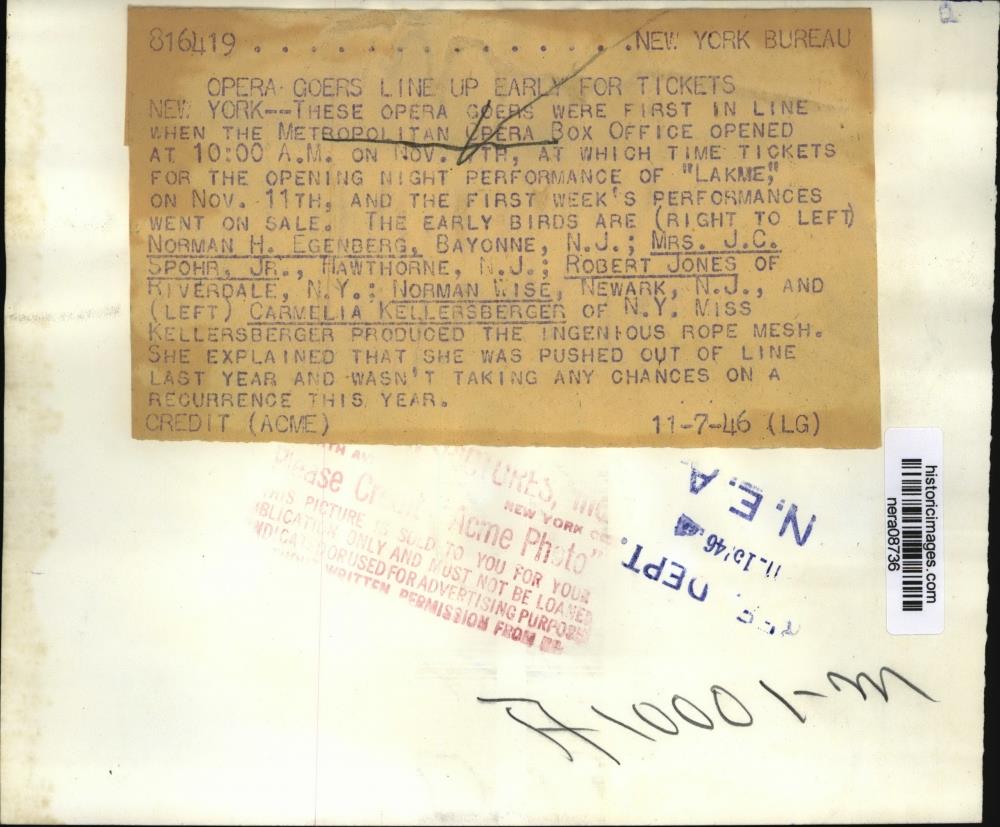 816419 . . . . . . . . . . . . . . .NEW YORK BUREAU
OPERA GOERS LINE UP EARLY FOR TICKETS
NEW YORK--THESE OPERA GOERS WERE FIRST IN LINE
WHEN THE METROPOLITAN OPERA BOX OFFICE OPENED
AT 10:00 A.M. ON NOV. 7TH, AT WHICH TIME TICKETS
FOR THE OPENING NIGHT PERFORMANCE OF "LAKME,"
ON NOV. 11TH, AND THE FIRST WEEK'S PERFORMANCES
WENT ON SALE. THE EARLY BIRDS ARE (RIGHT TO LEFT)
NORMAN H. EGENBERG, BAYONNE, N.J.; MRS. J.C.
SPOHR, JR., HAWTHORNE, N.J.; ROBERT JONES OF
RIVERDALE, N.Y.; NORMAN WISE, NEWARK, N.J., AND
(LEFT) CARMELIA KELLERSBERGER OF N.Y. MISS
KELLERSBERGER PRODUCED THE INGENIOUS ROPE MESH.
SHE EXPLAINED THAT SHE WAS PUSHED OUT OF LINE
LAST YEAR AND WASN'T TAKING ANY CHANCES ON A
RECURRENCE THIS YEAR.
CREDIT (ACME) 11-7-46 (LG)
PICTURES, INC
NEW YORK
Please Credit "Acme Photo"
THIS PICTURE IS SOLD TO YOU FOR YOUR
PUBLICATION ONLY AND MUST NOT BE LOANED
OR USED FOR ADVERTISING PURPOSES
WRITTEN PERMISSION FROM
N.E.A.
DEPT.
historicimages.com
nera08736
A10001-M